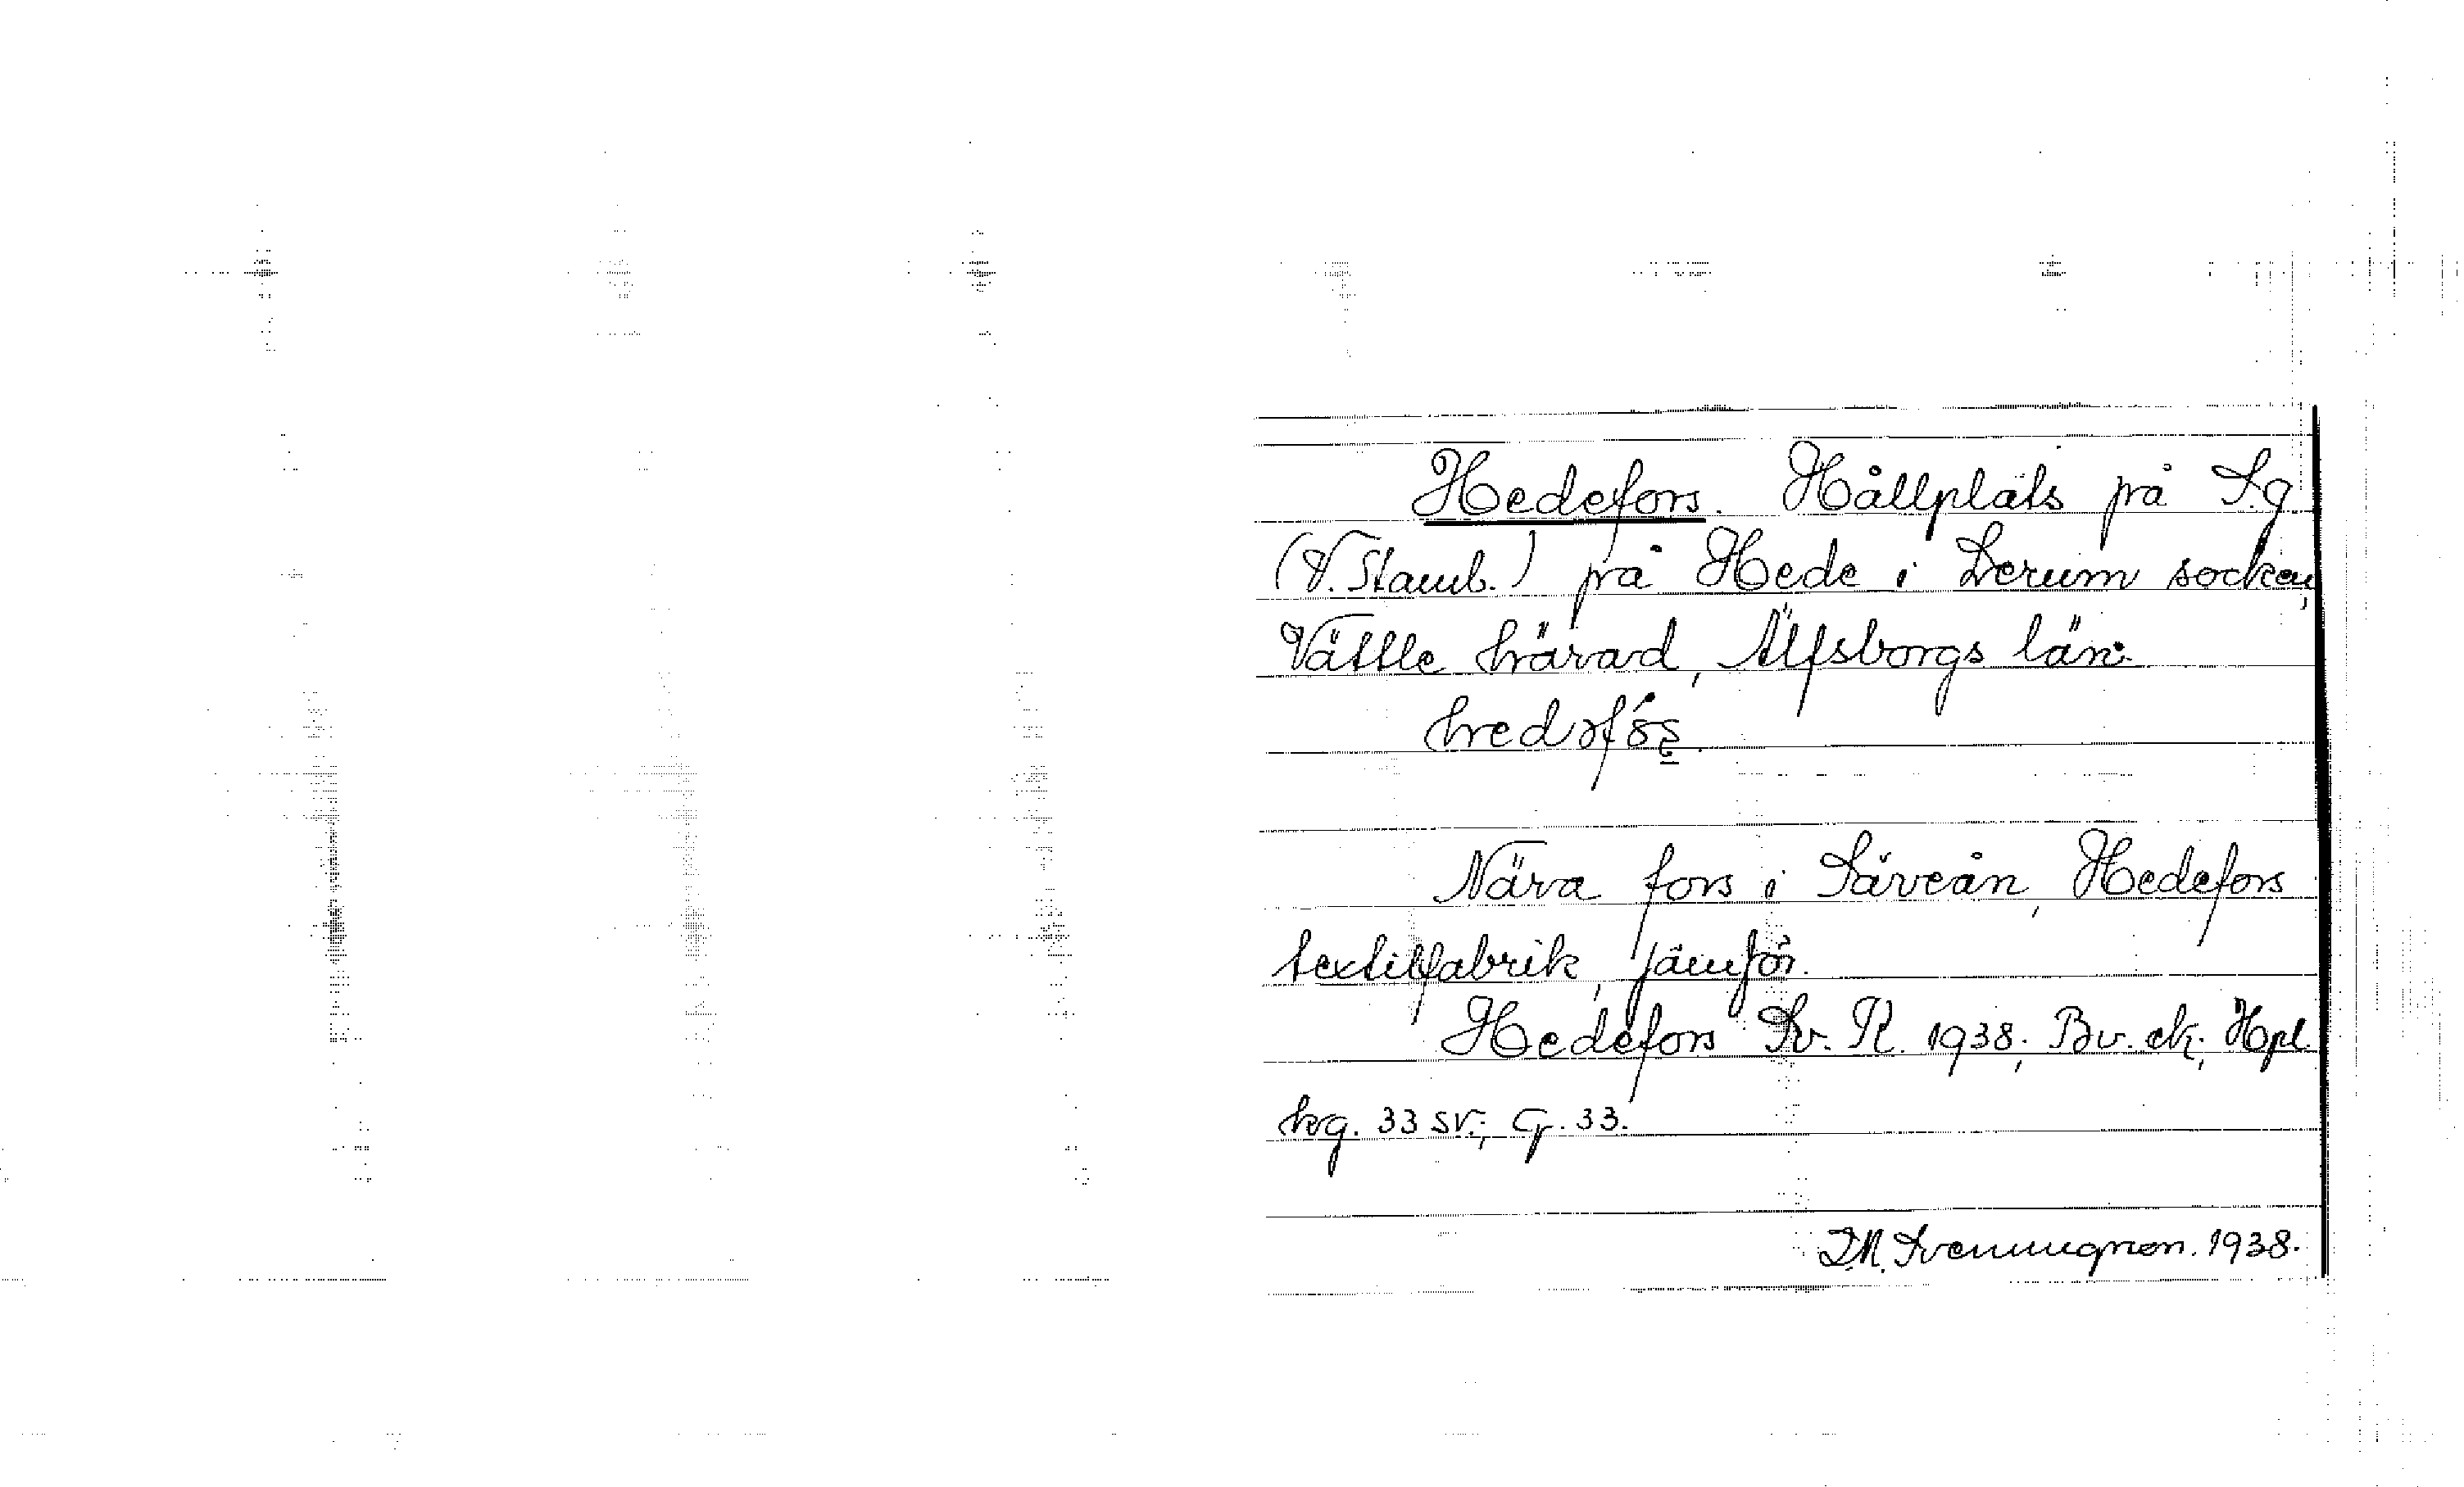 Hedefors. Hållplats på S.g.
(V. Stamb.) på Hede i Lerum socken,
Vättle härad, Älfsborgs län.
Nära fors i Säveån, Hedefors
textilfabrik, jämför.
Hedefors Sv. R. 1938; Bv. ek; Hpl.
hrg. 33 SV.; G. 33.
1938.